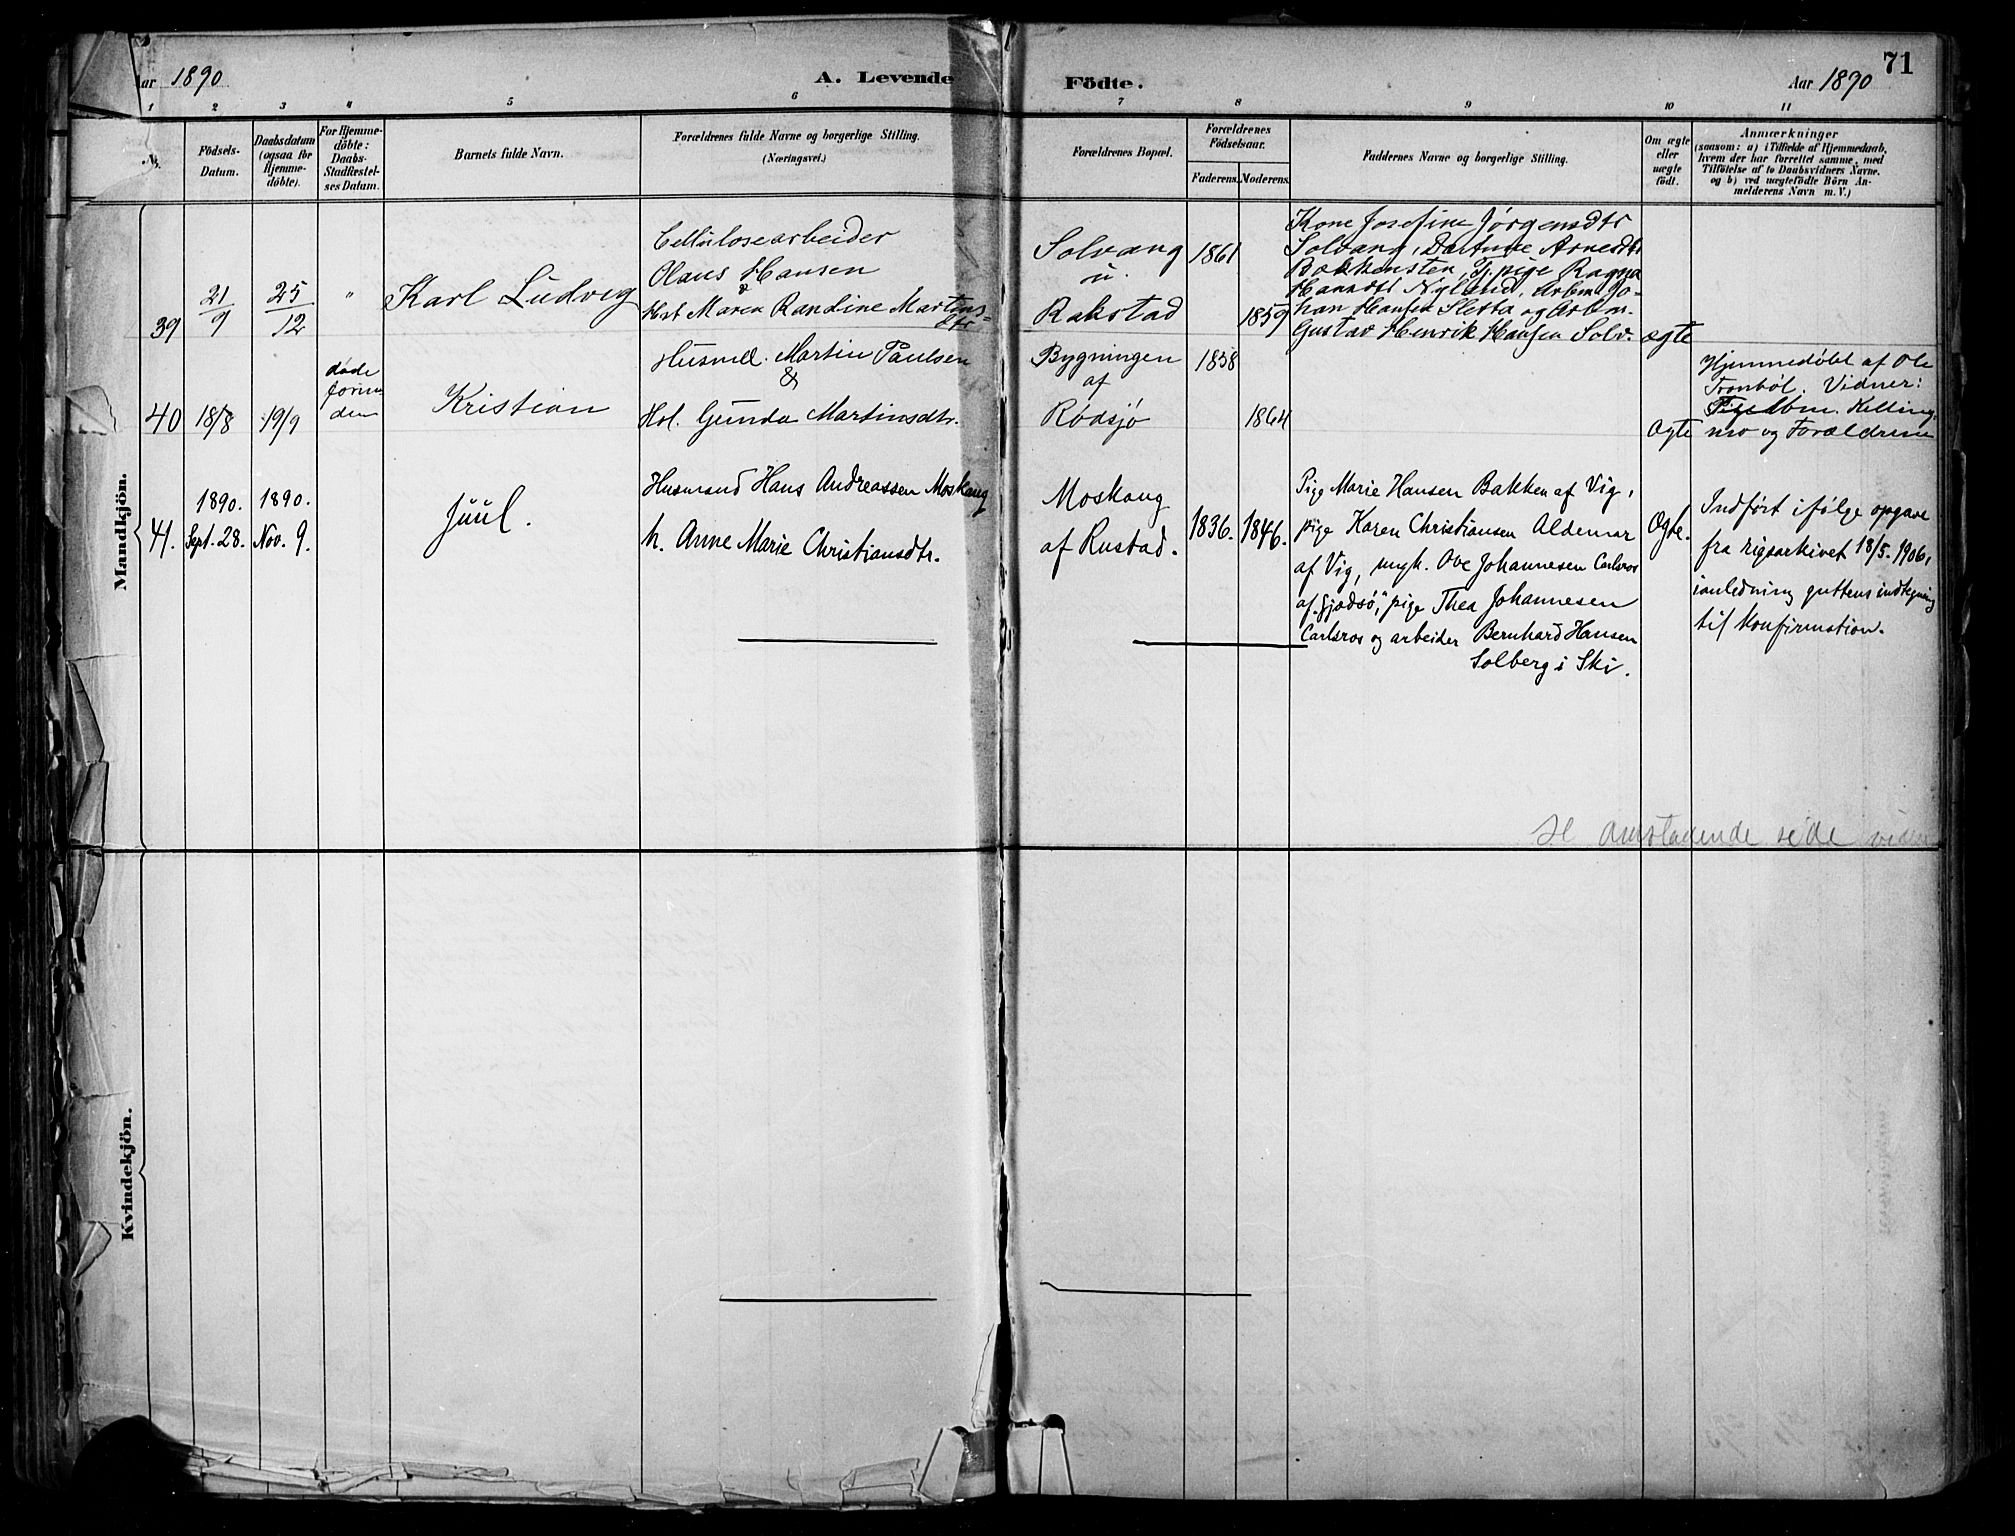 Aar 1890
A. Levende
Födte.
Aar 1890
71
1 2 3 4 5 6 7 8 9 10 11
Nr.
Födsels-
Datum.
Daabsdatum
(ogsaa for
Hjemme-
döbte).
For Hjemme-
döbte:
Daabs-
Stadfæstel-
ses Datum.
Barnets fulde Navn.
Forældrenes fulde Navne og borgerlige Stilling.
(Næringsvei.)
Forældrenes Bopæl.
Forældrenes
Födselsaar.
Faderens. Moderens.
Faddernes Navne og borgerlige Stilling.
Om ægte
eller
uægte
födt.
Anmærkninger
(saasom: a) i Tilfælde af Hjemmedaab,
hvem der har forrettet samme, med
Tilföielse af to Daabsvidners Navne.
og b) ved uægtefödte Börn An-
melderens Navn m. V.)
Mandkjön.
39
21/9
25/12
"
Karl Ludvig
Cellulosearbeider
Olaus Hansen
&
Hust Maren Randine Martins-
dtr
Solvang
u.
Rakstad
1861
1859
Kone Josefine Jørgensdtr
Solvang, Dorthe Arnedtr
Bakkensten, Tj. pige Ragna
Hansdtr Nylund, Arbm Jo-
han Hansen Sletta og Arbm.
Gustav Henrik Hansen Solv.
ægte
40
18/8
19/9
døde
forin-
den
Kristian
Husmd. Martin Paulsen
&
Hst. Gunda Martinsdtr.
Bygningen
af
Rødsjø
1858
1864
Ægte
Hjemmedøbt af Ole
Tronbøl. Vidner:
og Forældrene
41.
1890.
Sept. 28.
1890.
Nov. 9.
Juul.
Husmand Hans Andreassen Moskaug
h. Anne Marie Christiansdtr.
Moskaug
af Rustad.
1836. 1846.
Pige Marie Hansen Bakken af Vig,
pige Karen Christiansen Aldemar
af Vig, ungk. Ove Johannesen Carlsros
af Gjødsö," pige Thea Johannesen
Carlsros og arbeider Bernhard Hansen
Solberg i Ski.
Ægte.
Indført ifølge opgave
fra rigsarkivet 18/5. 1906,
i anledning guttens indtegning
til konfirmation.
omstaaende side
Kvindekjön.